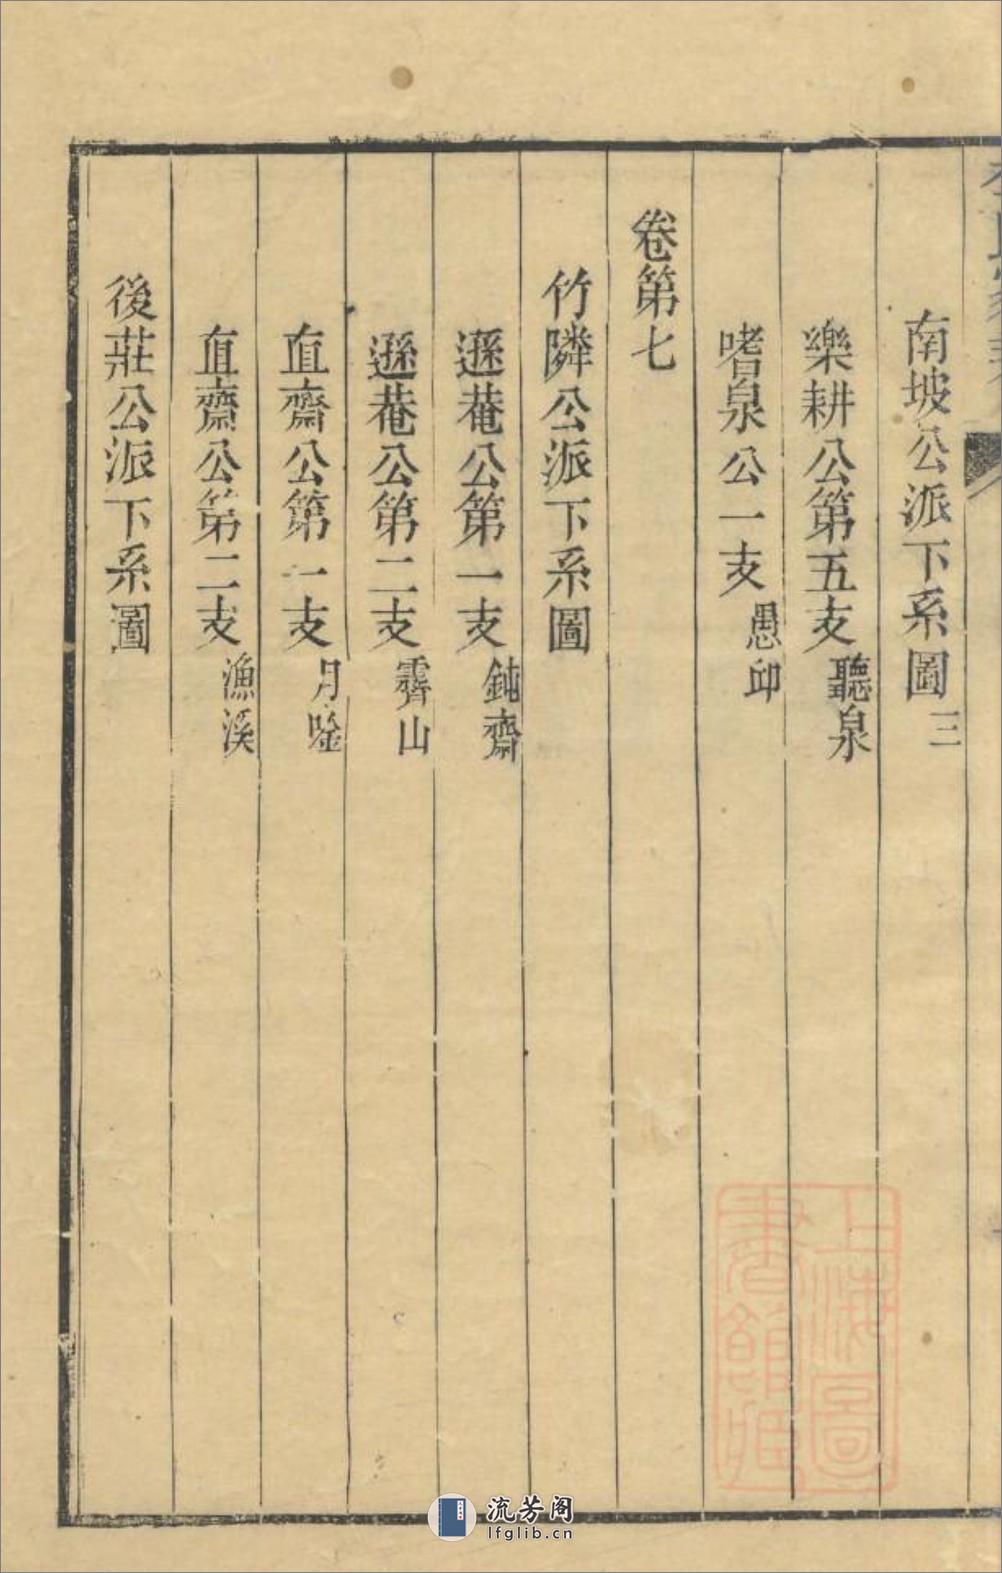 南坡公派下系圖三
樂耕公第五支聽泉
嗜泉公一支愚邱
卷第七
竹隣公派下系圖
遜菴公第一支鈍齋
遜菴公第二支霽山
直齋公第一支月崯
直齋公第二支漁溪
後莊公派下系圖
上海圖
書館藏
流芳阁
lfglib.cn